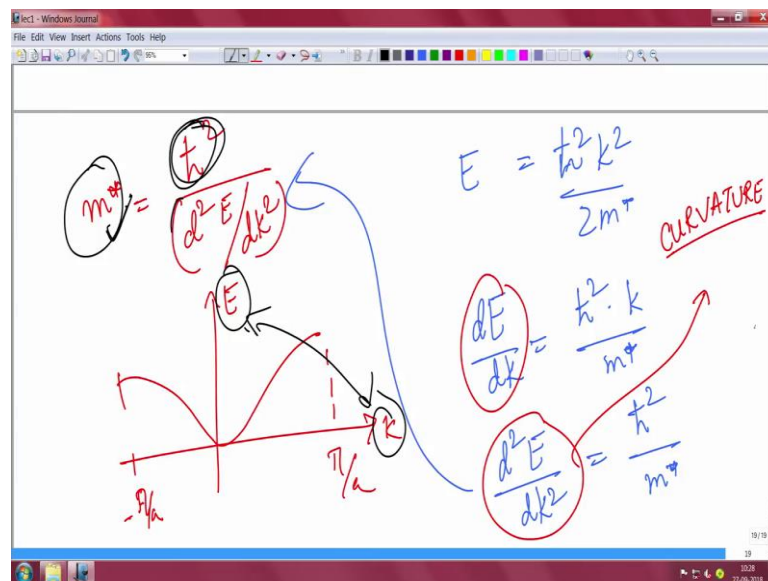 lec1 - Windows Journal
File Edit View Insert Actions Tools Help
95%
m* = ħ² / (d²E/dk²)
E = ħ²k² / 2m*
CURVATURE
dE/dk = ħ²·k / m*
d²E/dk² = ħ² / m*
E
k
-π/a
π/a
19/19
19
10:28
27-09-2018